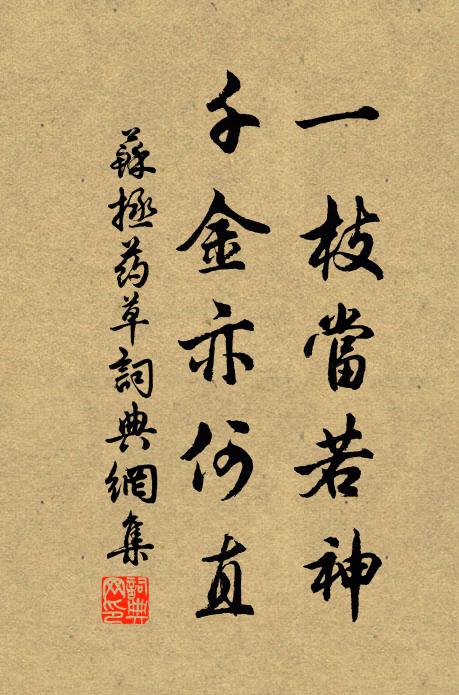 一枝當若神
千金亦何直
蘇拯药草詞典網集
詞典网印